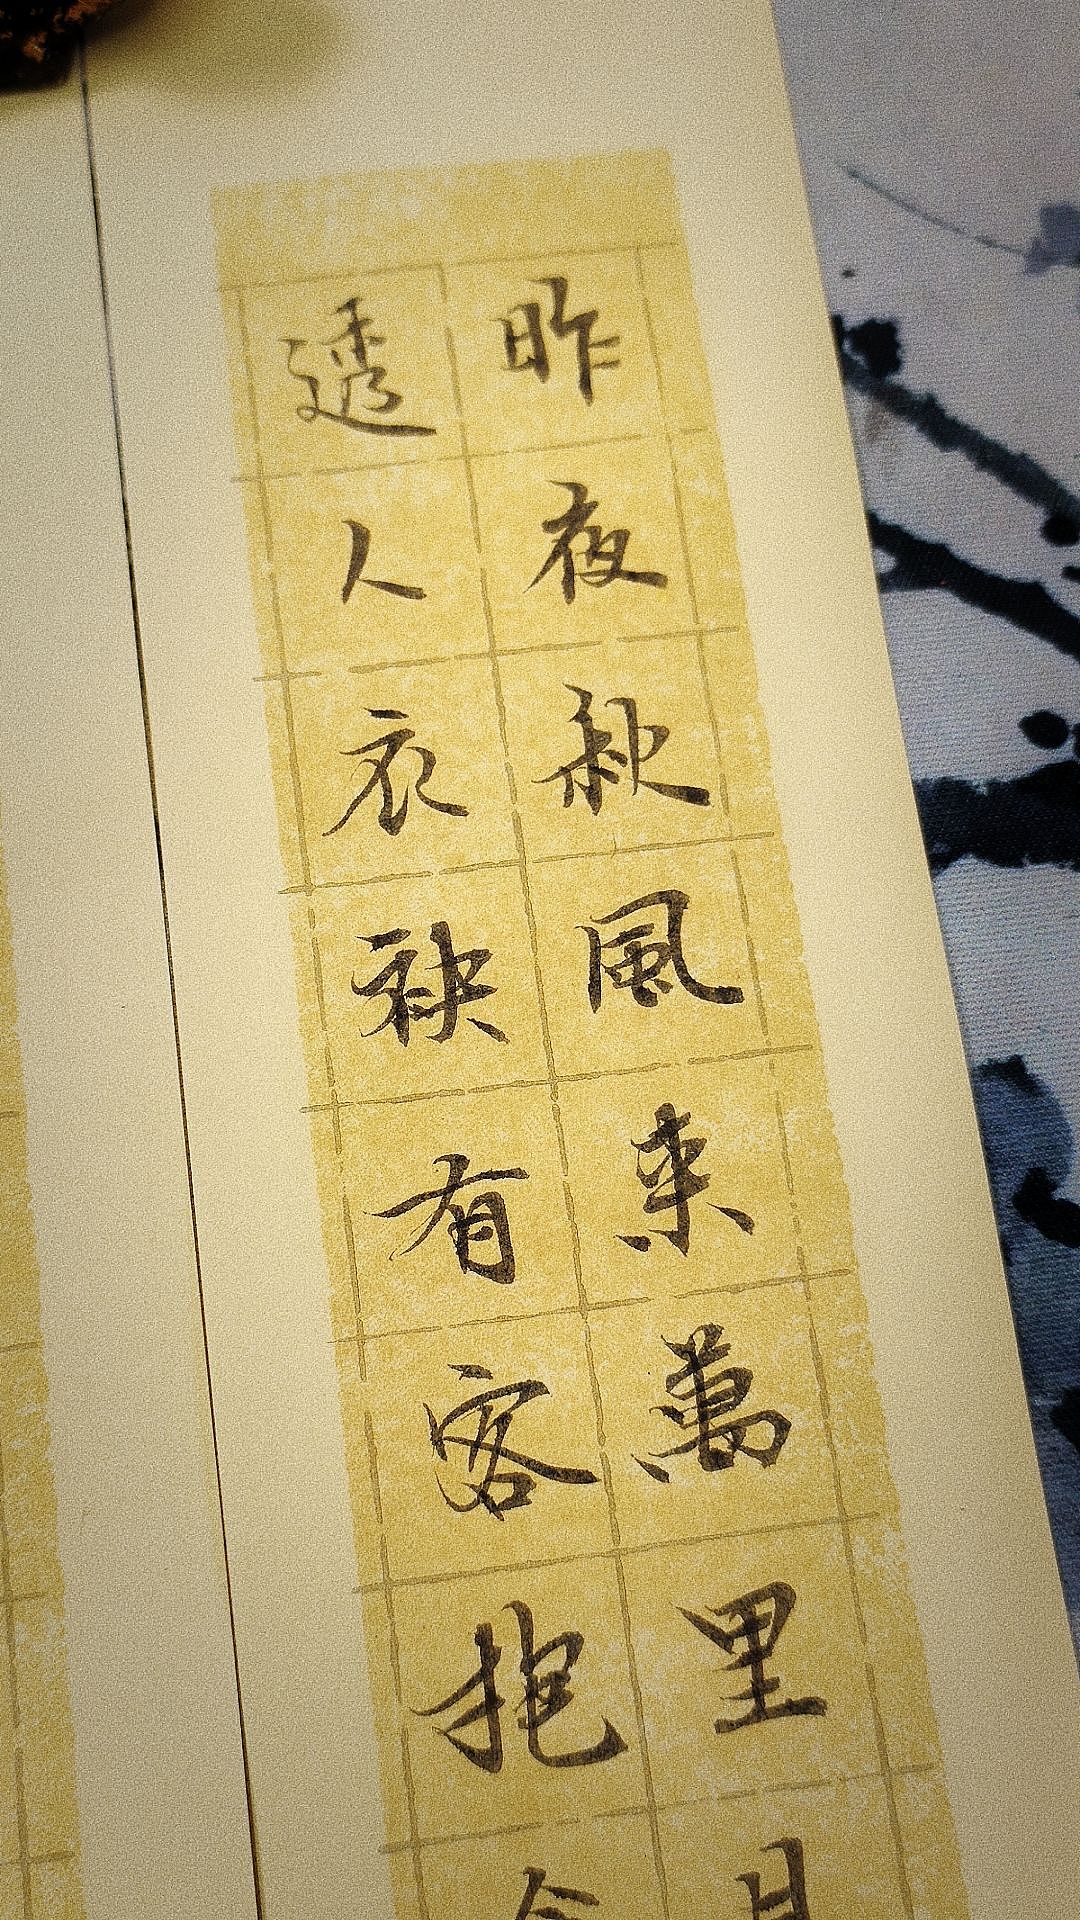 昨夜秋風来萬里月
透人衣袂有客抱